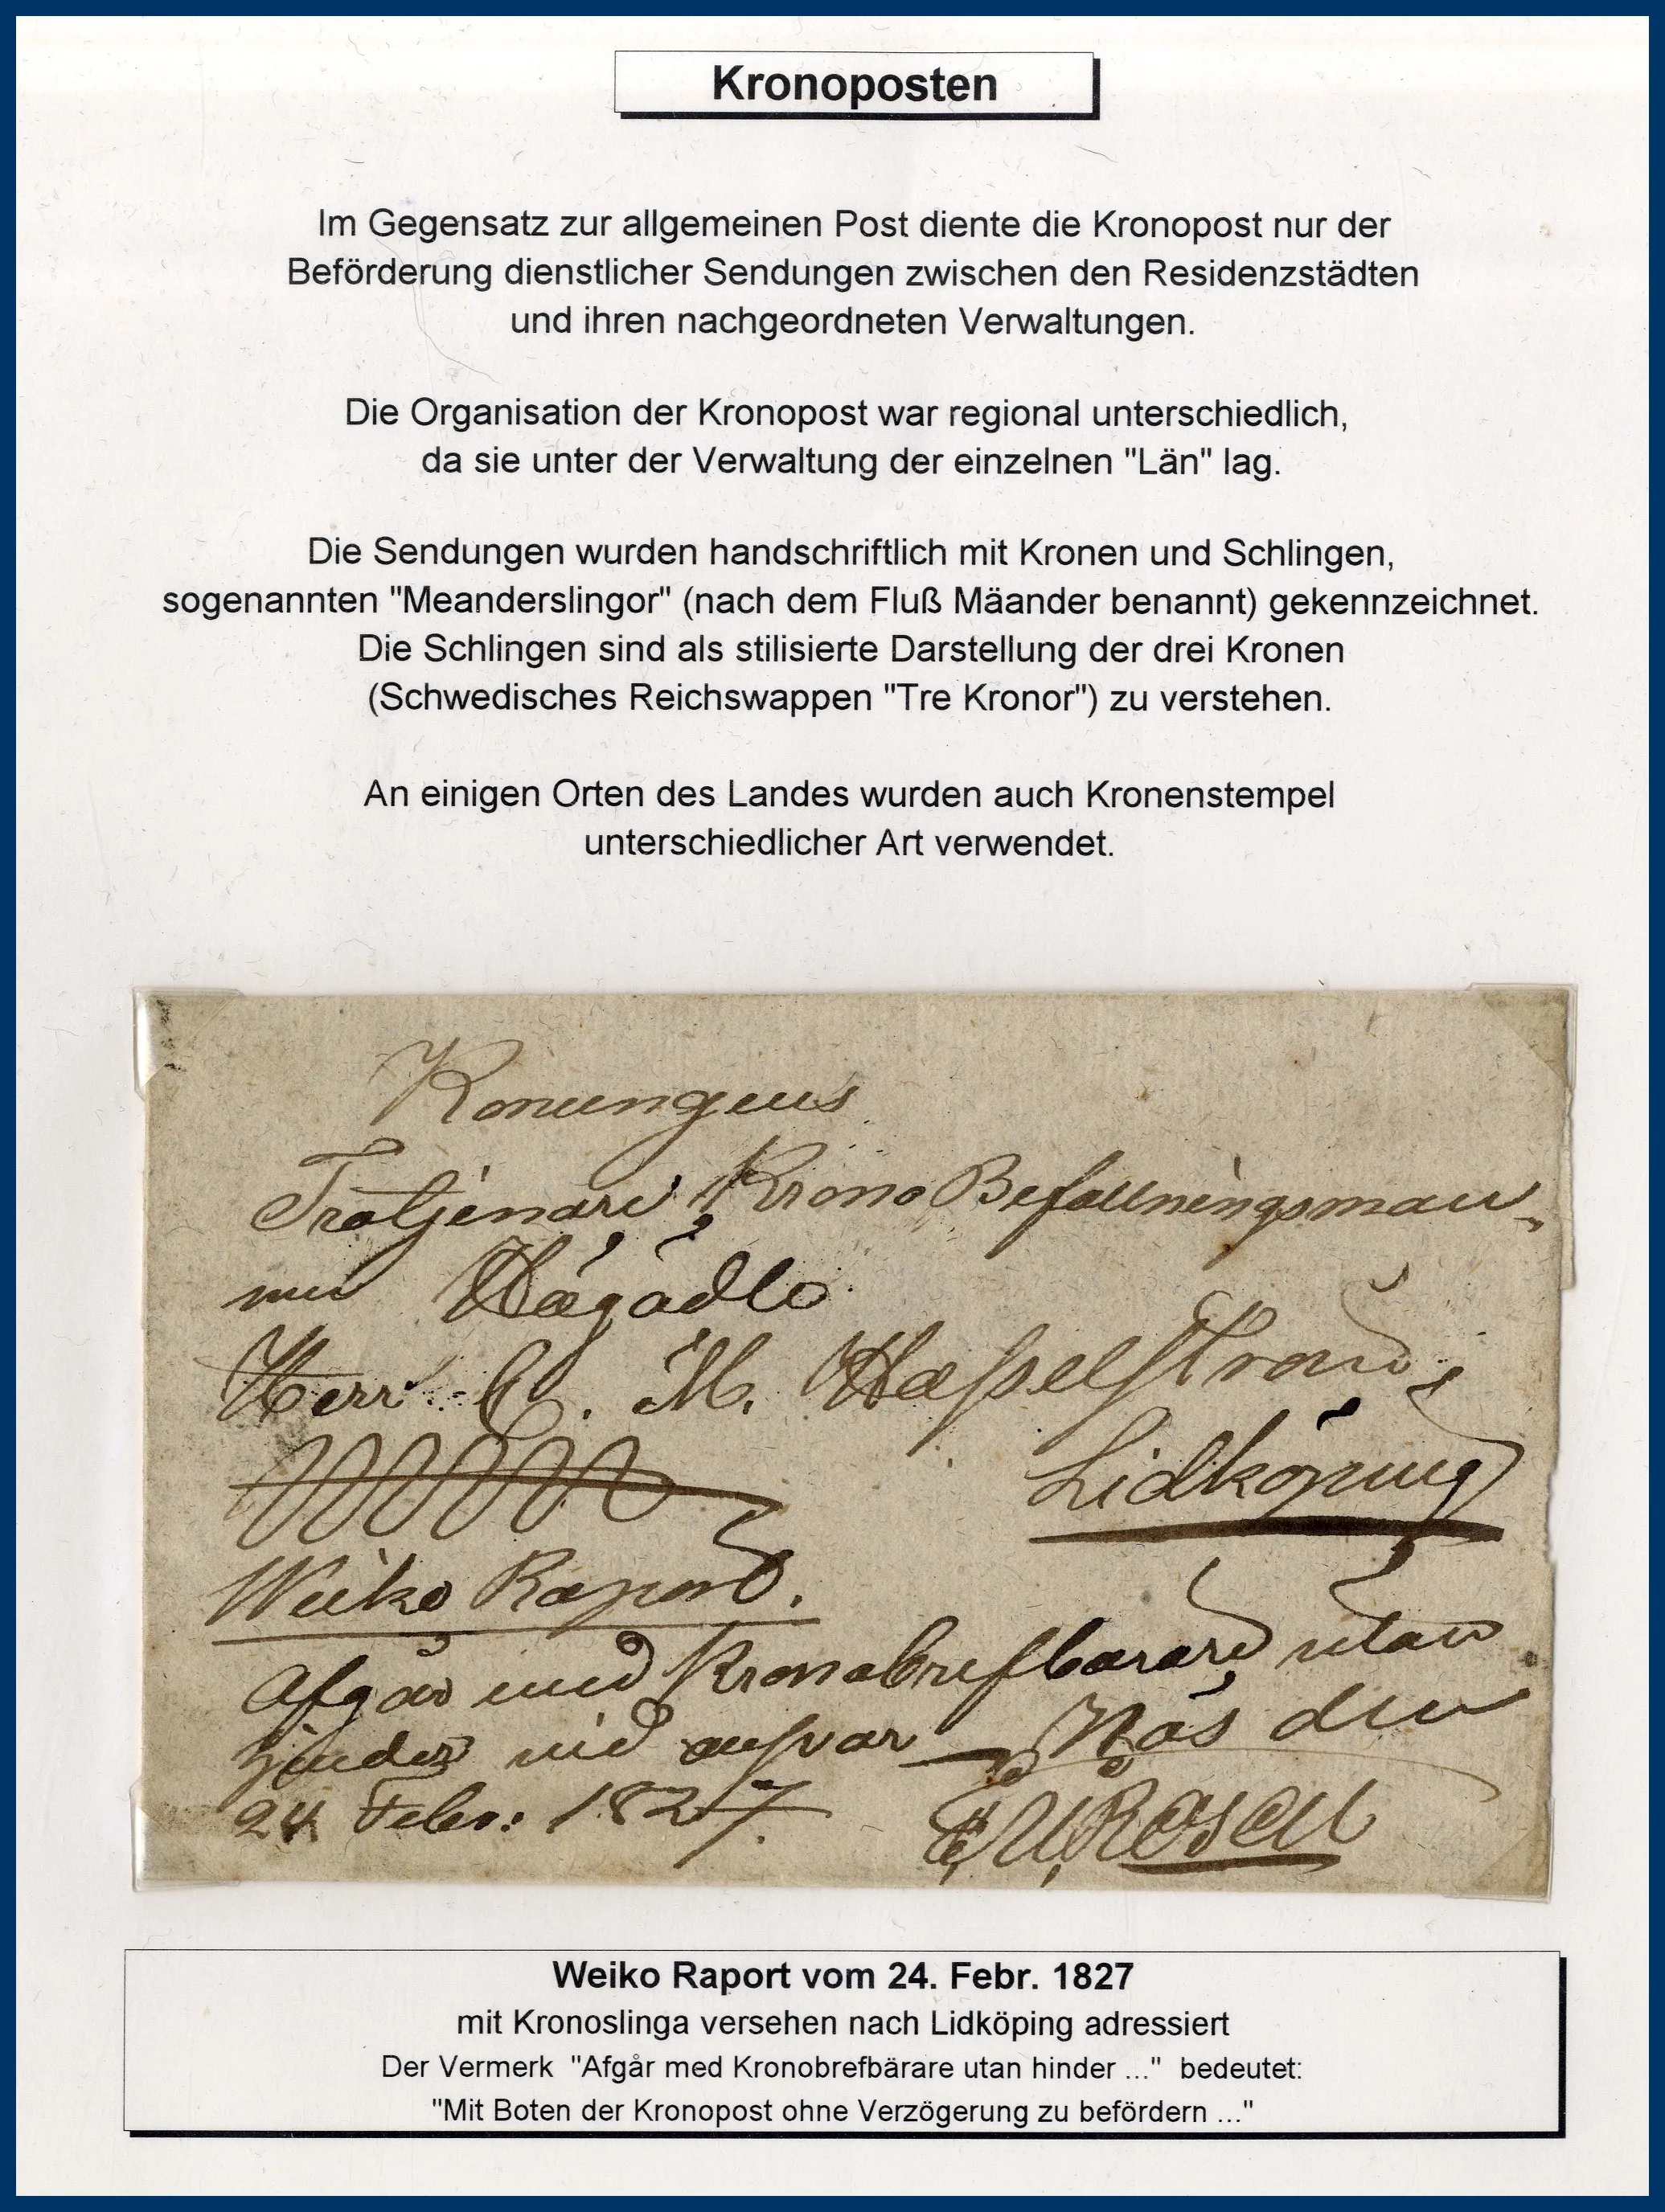 Kronoposten
Im Gegensatz zur allgemeinen Post diente die Kronopost nur der
Beförderung dienstlicher Sendungen zwischen den Residenzstädten
und ihren nachgeordneten Verwaltungen.
Die Organisation der Kronopost war regional unterschiedlich,
da sie unter der Verwaltung der einzelnen "Län" lag.
Die Sendungen wurden handschriftlich mit Kronen und Schlingen,
sogenannten "Meanderslingor" (nach dem Fluß Mäander benannt) gekennzeichnet.
Die Schlingen sind als stilisierte Darstellung der drei Kronen
(Schwedisches Reichswappen "Tre Kronor") zu verstehen.
An einigen Orten des Landes wurden auch Kronenstempel
unterschiedlicher Art verwendet.
Konungens
Krono Befallningsman
Herr C. M.
Lidköping
Weiko Raport.
Afgår med Kronobrefbärare utan
hinder vid answar Näs den
24 Febr: 1827.
Rosen
Weiko Raport vom 24. Febr. 1827
mit Kronoslinga versehen nach Lidköping adressiert
Der Vermerk "Afgår med Kronobrefbärare utan hinder ..." bedeutet:
"Mit Boten der Kronopost ohne Verzögerung zu befördern ..."